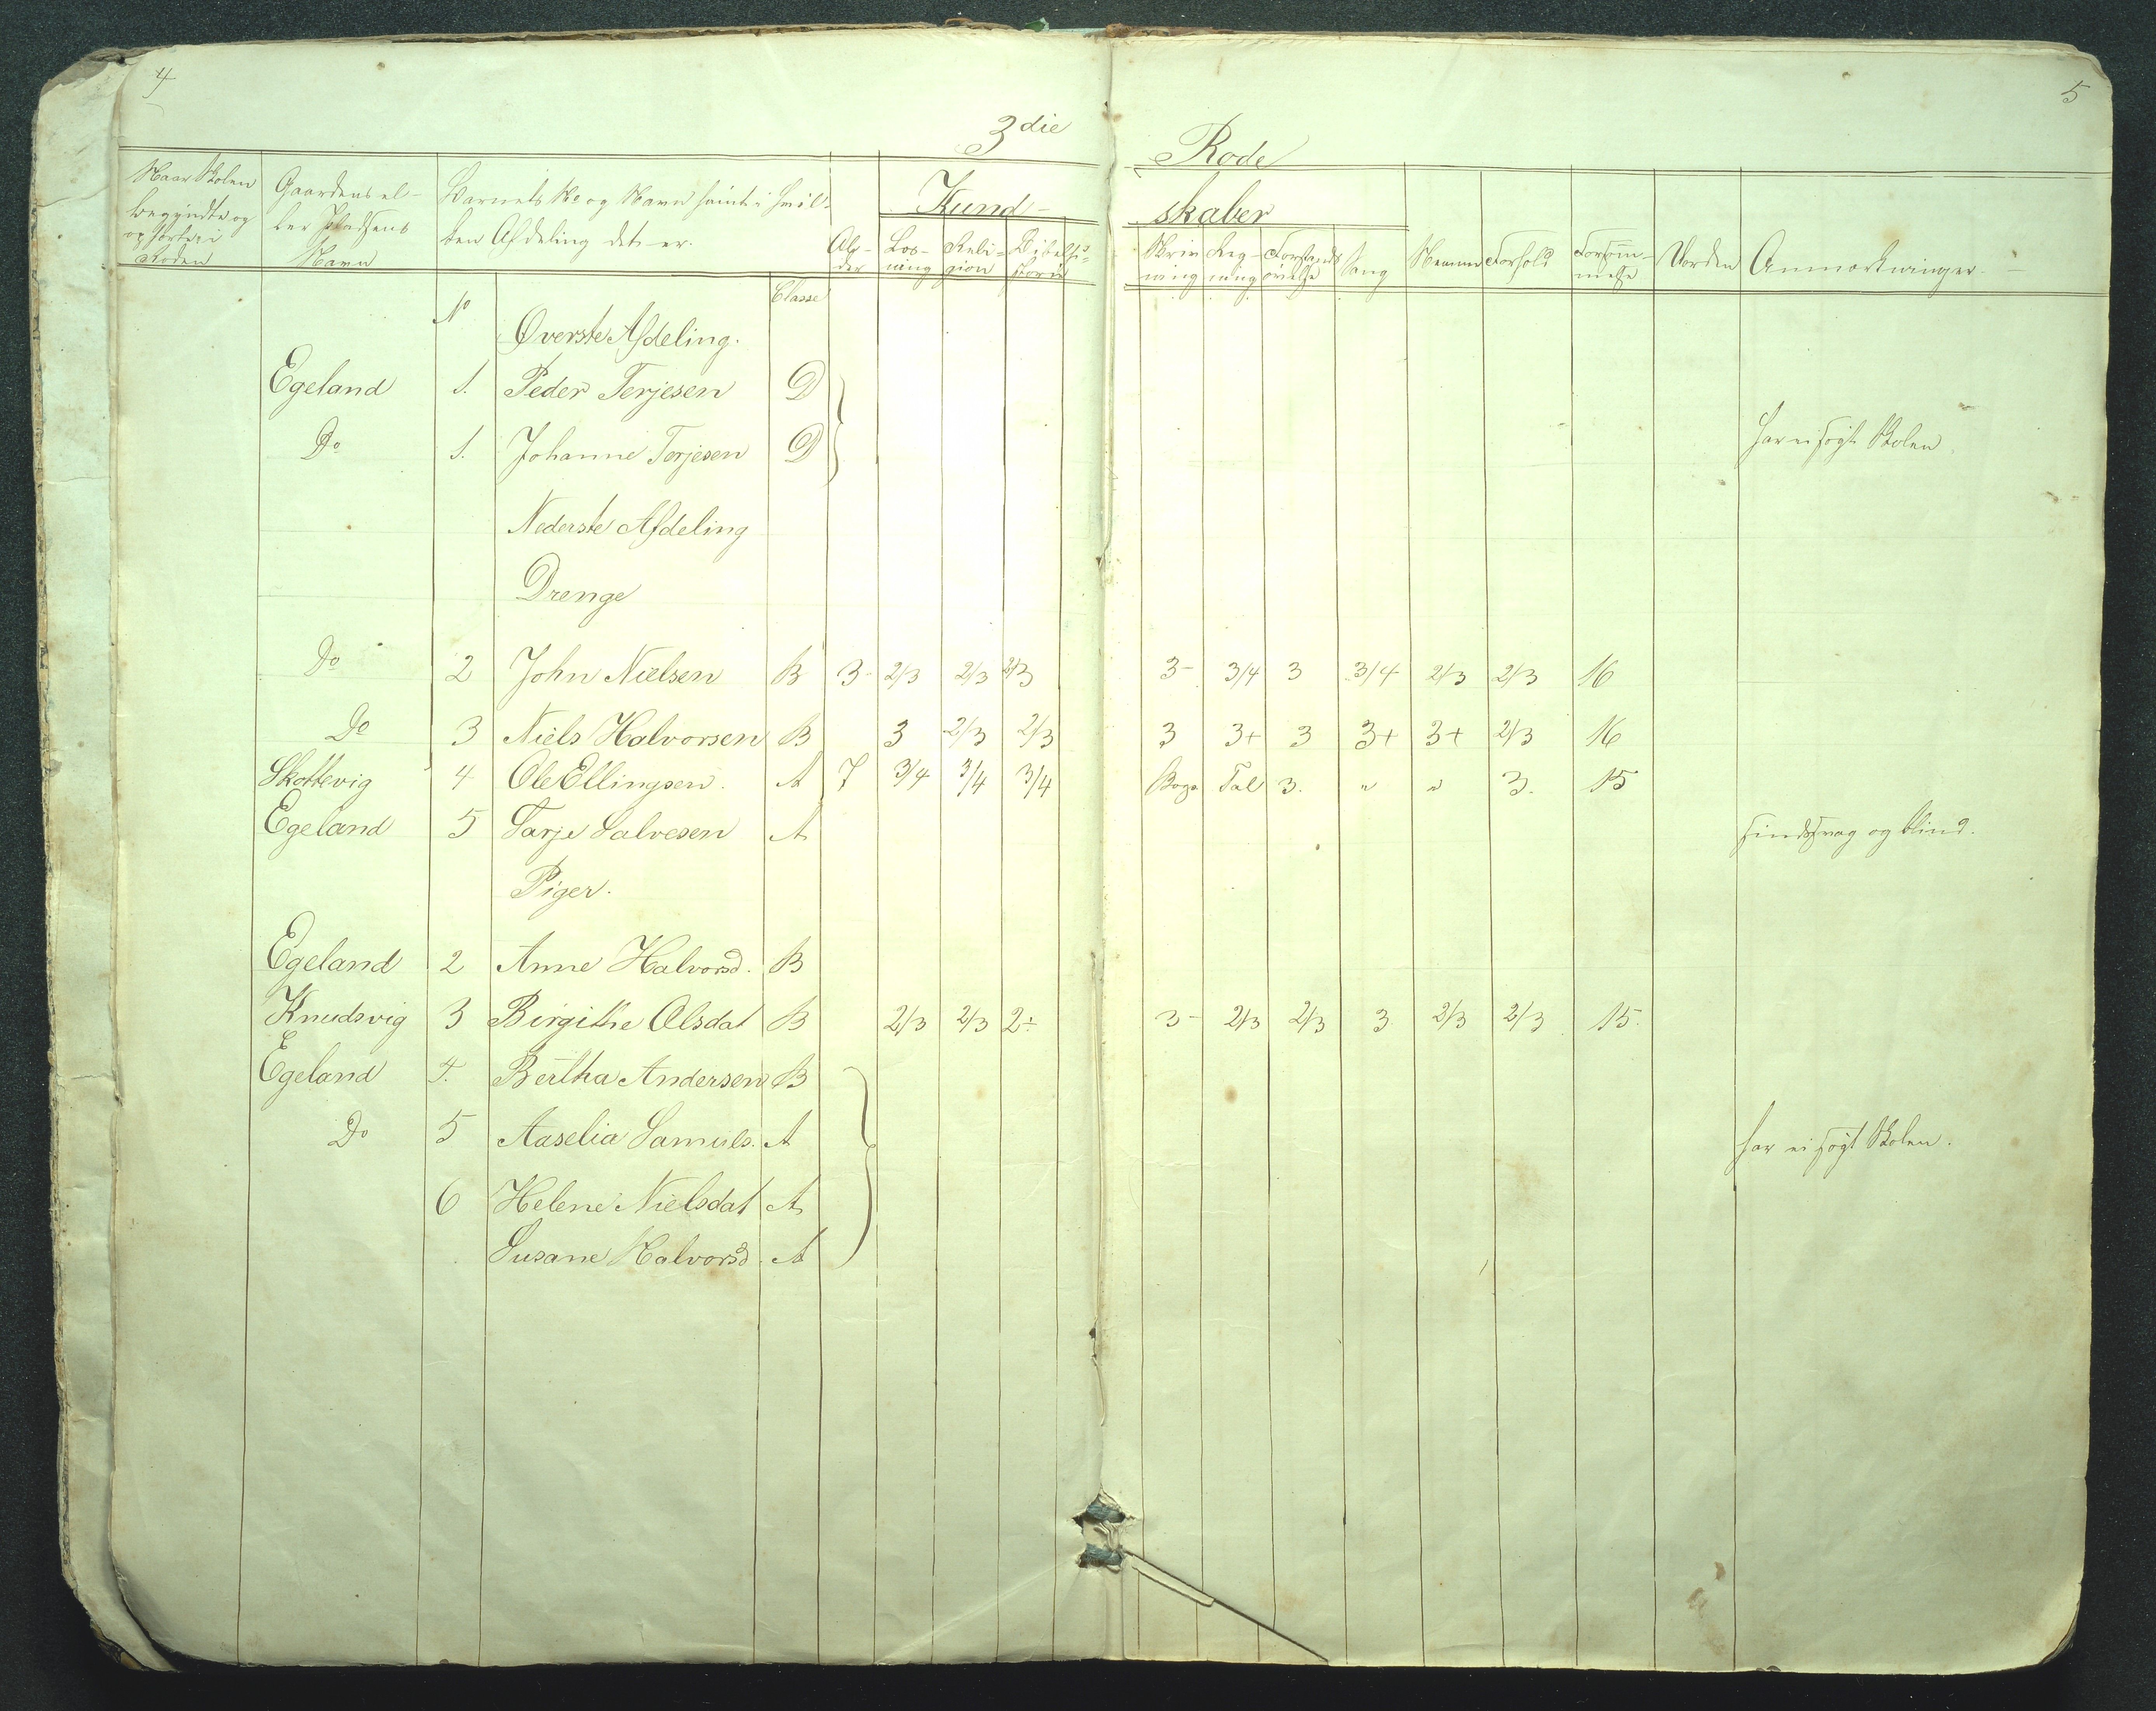 4
5
3die Rode
Naar Skolen begyndte og ophørte i Roden
Gaardens eller Pladsens Navn
Barnets No og Navn samt i hvilken Afdeling det er.
Alder
Kundskaber
Læsning
Religion
Bibelhistorie
Skrivning
Regning
Forstandsøvelse
Sang
Nemme
Forhold
Forsømmelse
Anmærkninger
No Classe
Øverste Afdeling.
Egeland 1. Peder Terjesen D
Do 1. Johanne Terjesen D har ei søgt Skolen
Nederste Afdeling
Drenge
Do 2 John Nielsen B 3- 2/3 2/3 2/3 3- 3/4 3 3/4 2/3 2/3 16
Do 3 Niels Halvorsen B 3 2/3 2/3 3 3+ 3 3+ 3+ 2/3 16
Skottevig 4 Ole Ellingsen. A 7 3/4 3/4 3/4 Bogs Tal 3. " " 3. 15
Egeland 5 Tarje Salvesen A sindssvag og blind.
Piger.
Egeland 2 Anne Halvorsd. B
Knudsvig 3 Birgithe Olsdat B 2/3 2/3 2÷ 3- 2/3 2/3 3 2/3 2/3 15.
Egeland 4. Bertha Andersen B
Do 5 Aaselia Samuls. A har ei søgt Skolen.
6 Helene Nielsdat A
Susane Halvorsd. A